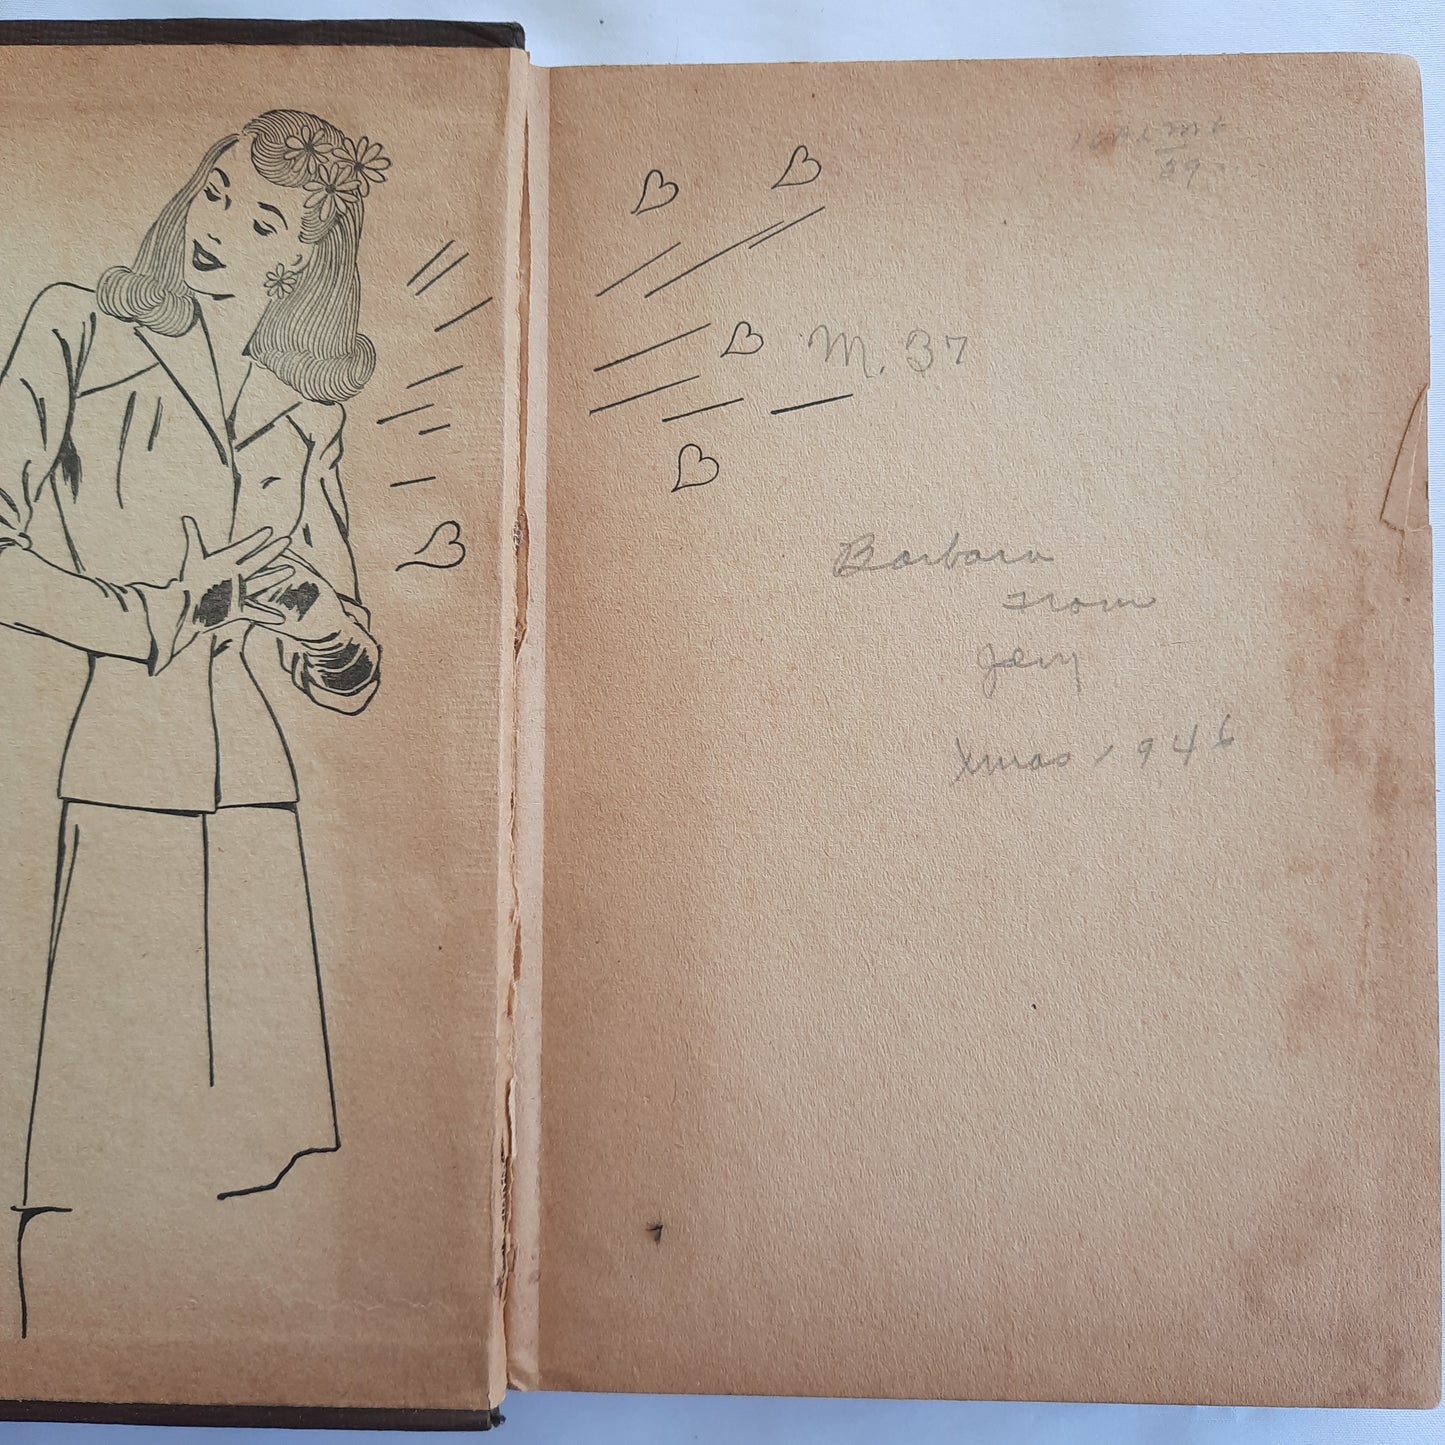 M. 37
Barbara
From
Jerry
Xmas 1946